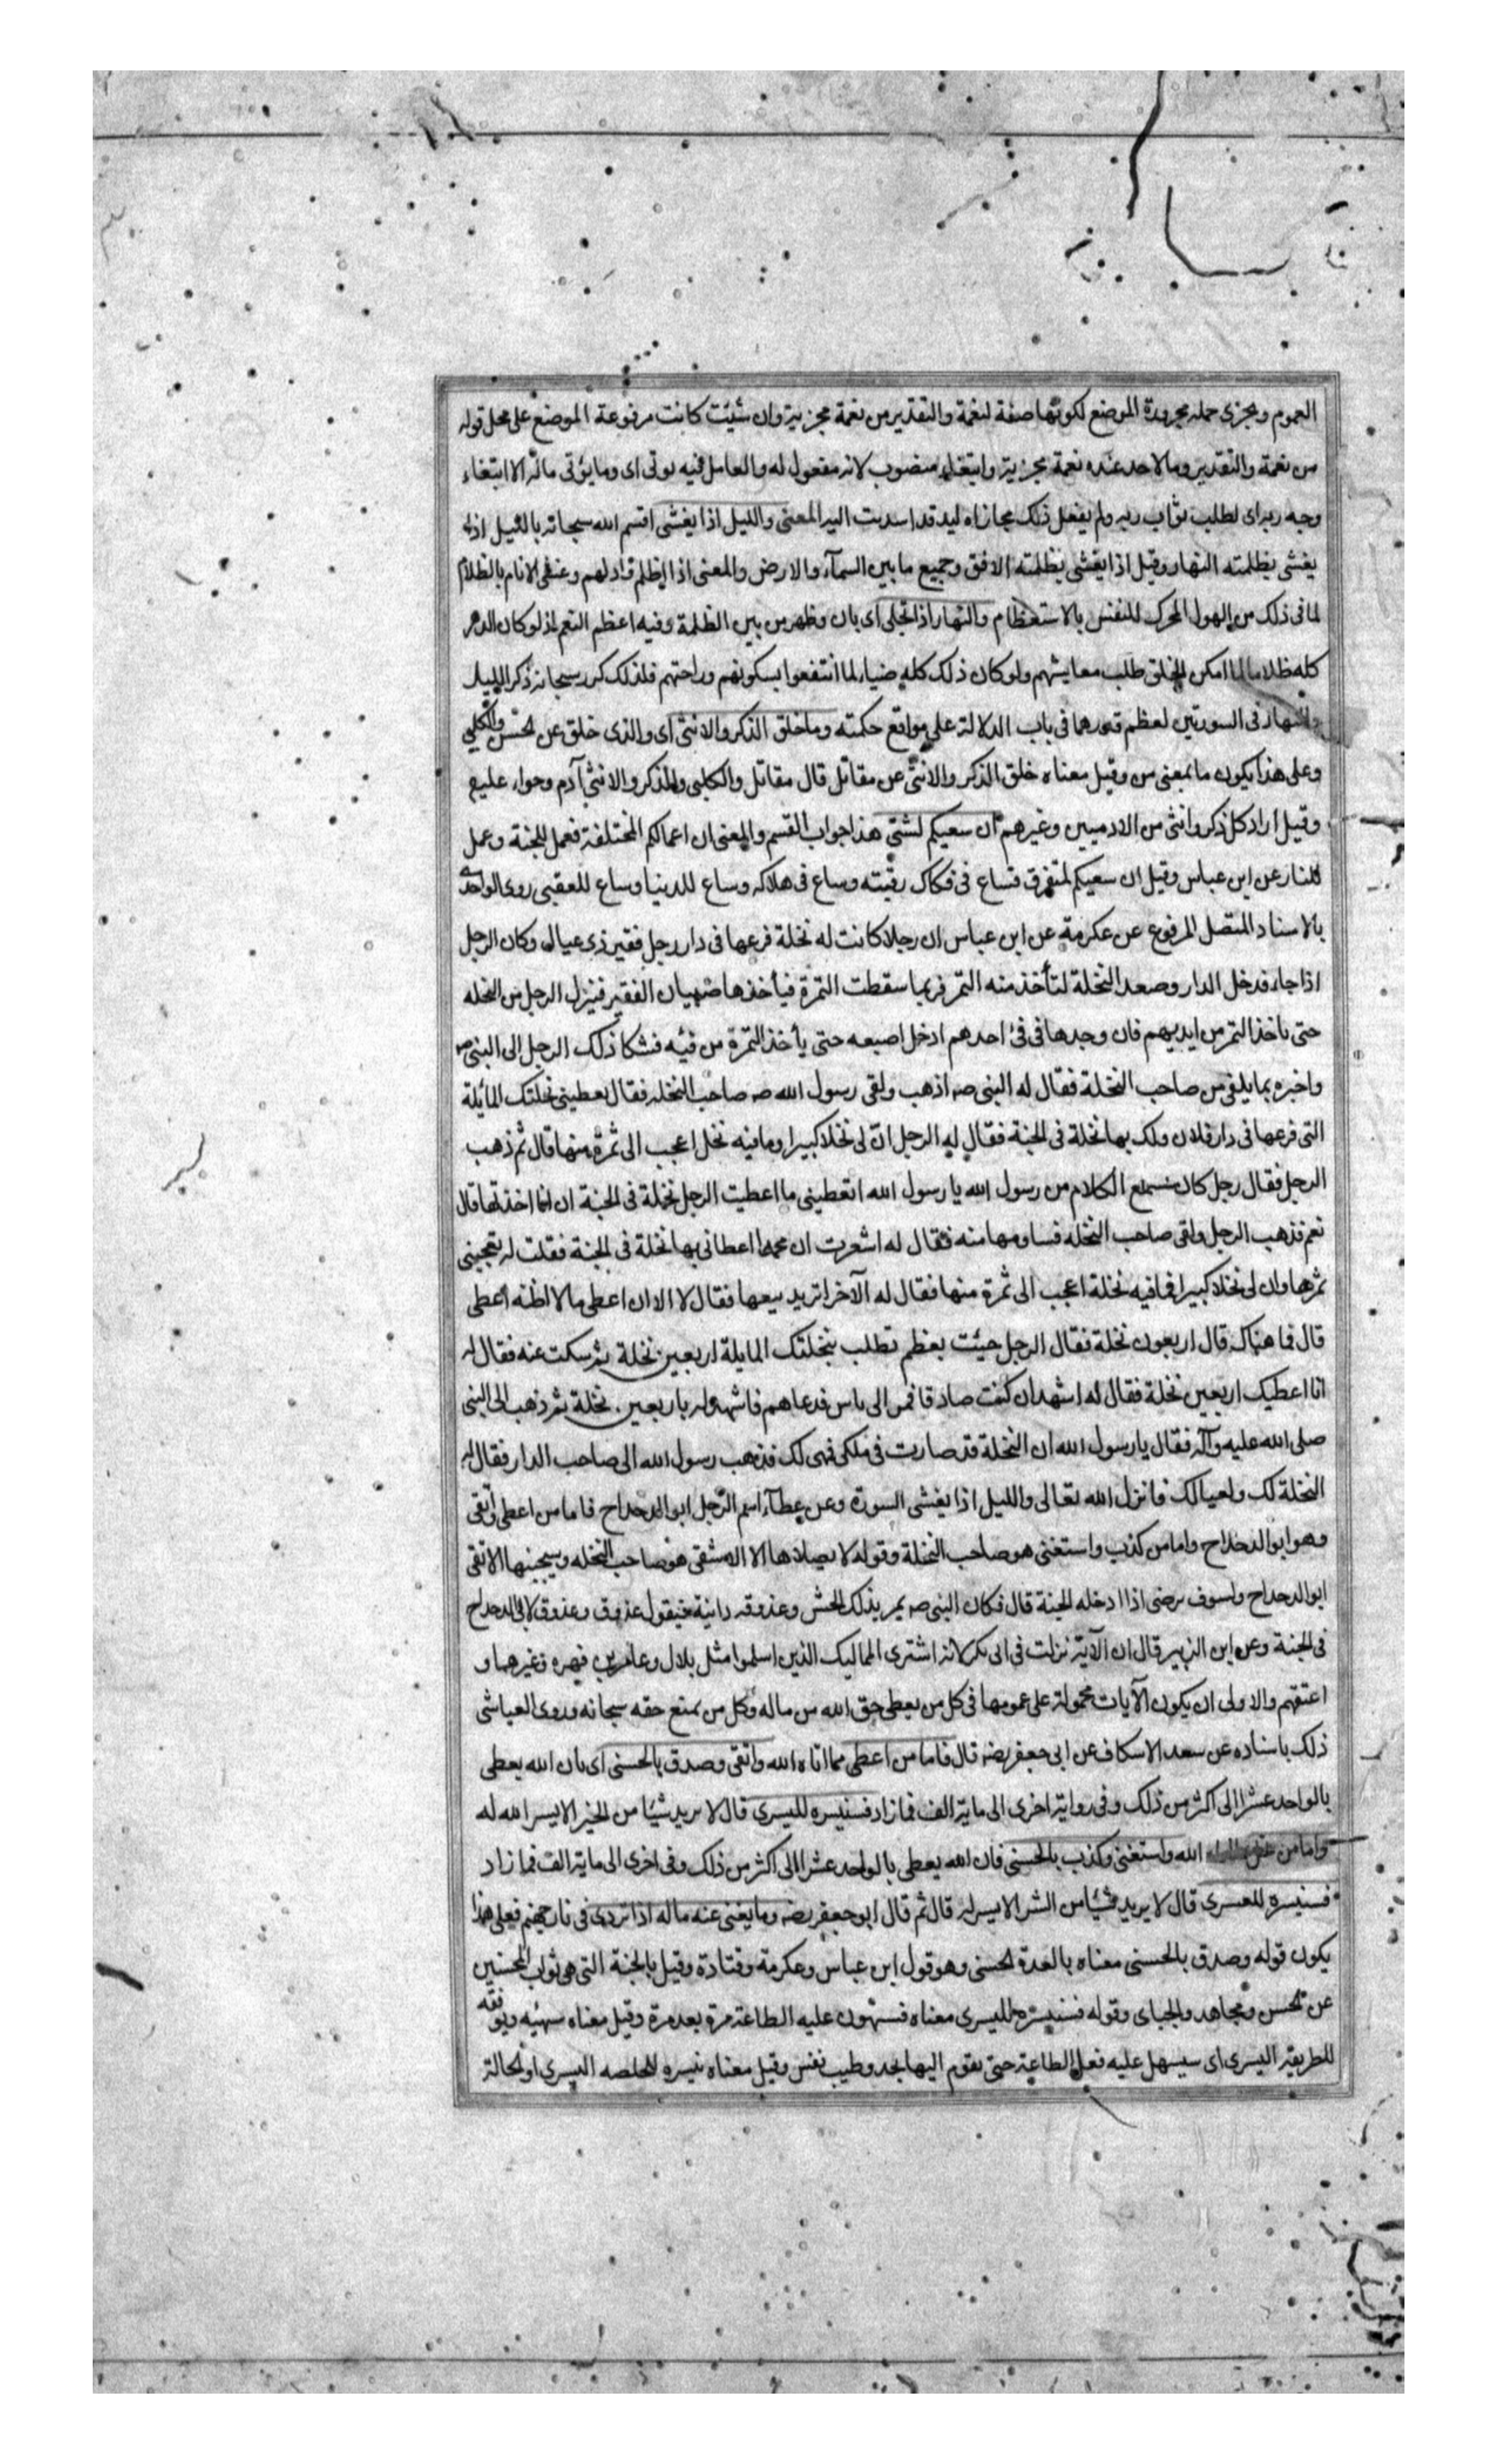 العموم ويجزى جملة مجرورة الموضع لكونها صفة لنعمة والتقدير من نعمة مجزية وان شئت كانت مرفوعة الموضع على محل قوله
من نعمة والتقدير وما لاحد عنده نعمة مجزية وابتغاء منصوب لانه مفعول له والعامل فيه يوتى اى وما يؤتى ماله الا ابتغاء
وجه ربه اى لطلب ثواب ربه ولم يفعل ذلك مجازاة ليد قد اسديت اليه المعنى والليل اذا يغشى اقسم الله سبحانه بالليل اذا
يغشى بظلمته النهار وقيل اذا يغشى بظلمته الافق وجميع ما بين السمآء والارض والمعنى اذا اظلم وادلهم وغشى الانام بالظلام
لما فى ذلك من الهول المحرك للنفس بالاستعظام والنهار اذا تجلى اى بان وظهر من بين الظلمة وفيه اعظم النعم اذ لو كان الدهر
كله ظلاما لما امكن الخلق طلب معايشهم ولو كان ذلك كله ضياء لما انتفعوا بسكونهم وراحتهم فلذلك كرر سبحانه ذكر الليل
والنهار فى السورتين لعظم قدرهما فى باب الدلالة على مواقع حكمته وما خلق الذكر والانثى اى والذى خلق عن الحسن والكلبى
وعلى هذا يكون ما بمعنى من وقيل معناه خلق الذكر والانثى عن مقاتل قال مقاتل والكلبى والذكر والانثى آدم وحواء عليهم
وقيل اراد كل ذكر وانثى من الادميين وغيرهم ان سعيكم لشتى هذا جواب القسم والمعنى ان اعمالكم المختلفة فعمل للجنة وعمل
للنار عن ابن عباس وقيل ان سعيكم لمتفرق فساع فى فكاك رقبته وساع فى هلاكه وساع للدنيا وساع للعقبى روى الواحدى
بالاسناد المتصل المرفوع عن عكرمة عن ابن عباس ان رجلا كانت له نخلة فرعها فى دار رجل فقير ذى عيال وكان الرجل
اذا جاء فدخل الدار وصعد النخلة لتأخذ منه التمر فربما سقطت التمرة فيأخذها صبيان الفقير فينزل الرجل من النخله
حتى ياخذ التمر من ايديهم فان وجدها فى فئ احدهم ادخل اصبعه حتى يأخذ التمرة من فيه فشكا ذلك الرجل الى النبى ص
واخبره بما يلقى من صاحب النخلة فقال له النبى صه اذهب ولقى رسول الله صه صاحب النخله فقال تعطينى نخلتك المائلة
التى فرعها فى دار فلان ولك بها نخلة فى الجنة فقال له الرجل ان لى نخلا كبيرا وما فيه نخل اعجب الى ثمرة منها قال ثم ذهب
الرجل فقال رجل كان يسمع الكلام من رسول الله يا رسول الله اتعطينى ما اعطيت الرجل نخلة فى الجنة ان انا اخذتها قال
نعم فذهب الرجل ولقى صاحب النخله فساومها منه فقال له اشعرت ان محمدا اعطانى بها نخلة فى الجنة فقلت له يعجبنى
ثمرها وان لى نخلا كبيرا فما فيه نخلة اعجب الى ثمرة منها فقال له الآخر اتريد بيعها فقال لا الا ان اعطى ما لا اظنه اعطى
قال فما هناك قال اربعون نخلة فقال الرجل جيئت بعظم تطلب بنخلتك المايلة اربعين نخلة ثم سكت عنه فقال له
انا اعطيك اربعين نخلة فقال له اشهد ان كنت صادقا فمر الى ناس فدعاهم فاشهد له باربعين نخلة ثم ذهب الى النبى
صلى الله عليه وآله فقال يا رسول الله ان النخلة قد صارت فى ملكى فهى لك فذهب رسول الله الى صاحب الدار فقال له
النخلة لك ولعيالك فانزل الله تعالى والليل اذا يغشى السورة وعن عطآء اسم الرجل ابو الدحداح فاما من اعطى واتقى
وهو ابو الدحداح واما من كذب واستغنى هو صاحب النخلة وقوله لا يصلاها الا الاشقى هو صاحب النخله وسيجنبها الاتقى
ابو الدحداح ولسوف يرضى اذا ادخله الجنة قال فكان النبى صه يمر بذلك الحش وعذوقه دانية فيقول عذوق وعذوق لابى الدحداح
فى الجنة وعن ابن الزبير قال ان الآية نزلت فى ابى بكر لانه اشترى المماليك الذين اسلموا مثل بلال وعامر بن فهيره وغيرهما و
اعتقهم والاولى ان يكون الآيات محمولة على عمومها فى كل من يعطى حق الله من ماله وكل من يمنع حقه سبحانه وروى العياشى
ذلك باسناده عن سعد الاسكاف عن ابى جعفر قال فاما من اعطى مما اتاه الله واتقى وصدق بالحسنى اى بان الله يعطى
بالواحد عشرا الى اكثر من ذلك وفى رواية اخرى الى ماية الف فما زاد فسنيسره لليسرى قال لا يريد شيئا من الخير الا يسر الله له
واما من بخل الله واستغنى وكذب بالحسنى فان الله يعطى بالواحد عشرا الى اكثر من ذلك وفى اخرى الى ماية الف فما زاد
فسنيسره للعسرى قال لا يريد شيئا من الشر الا يسر له قال ثم قال ابو جعفر وما يغنى عنه ماله اذا تردى فى نار جهنم فعلى هذا
يكون قوله وصدق بالحسنى معناه بالعدة الحسنى وهو قول ابن عباس وعكرمة وقتادة وقيل بالجنة التى هى ثواب المحسنين
عن الحسن ومجاهد والجباى وقوله فسنيسره لليسرى معناه فسنهون عليه الطاعة مرة بعد مرة وقيل معناه سنهيئه ونوفقه
للطريقة اليسرى اى سيسهل عليه فعل الطاعة حتى يقوم اليها بجد وطيب نفس وقيل معناه نيسره للخلصه اليسرى او الحالة